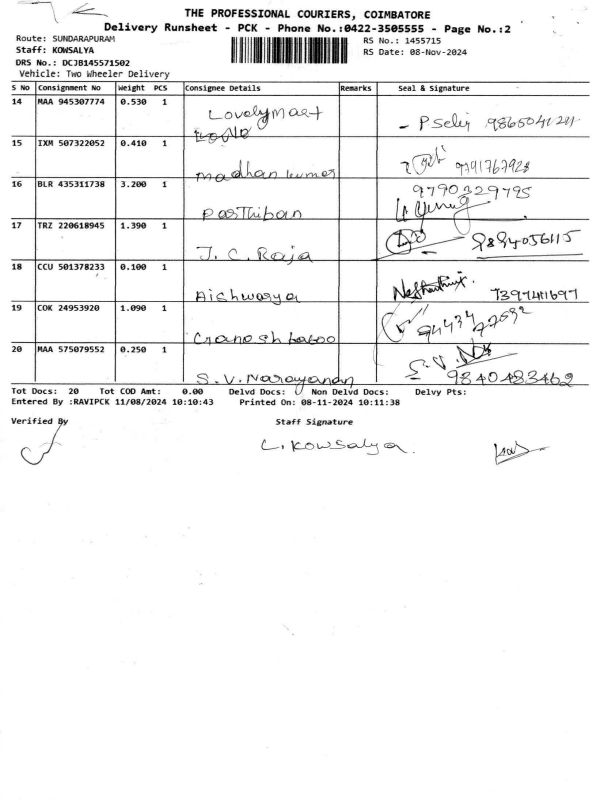 THE PROFESSIONAL COURIERS, COIMBATORE
Delivery Runsheet - PCK - Phone No.:0422-3505555 - Page No.:2
Route: SUNDARAPURAM
RS No.: 1455715
Staff: KOWSALYA
RS Date: 08-Nov-2024
DRS No.: DCJB145571502
Vehicle: Two Wheeler Delivery
S No Consignment No Weight PCS Consignee Details Remarks Seal & Signature
14 MAA 945307774 0.530 1 Lovelymart
- P Selvj 9865041211
15 IXM 507322052 0.410 1 Madhan kumar 9791767928
16 BLR 435311738 3.200 1 Parthiban 9790329795
17 TRZ 220618945 1.390 1 J. C. Raja 9894056115
18 CCU 501378233 0.100 1 Aishwarya 7397411697
19 COK 24953920 1.090 1 Ganesh baboo
20 MAA 575079552 0.250 1 S.V. Narayanan 9840483462
Tot Docs: 20 Tot COD Amt: 0.00 Delvd Docs: Non Delvd Docs: Delvy Pts:
Entered By :RAVIPCK 11/08/2024 10:10:43 Printed On: 08-11-2024 10:11:38
Verified By Staff Signature
L. Kowsalya.